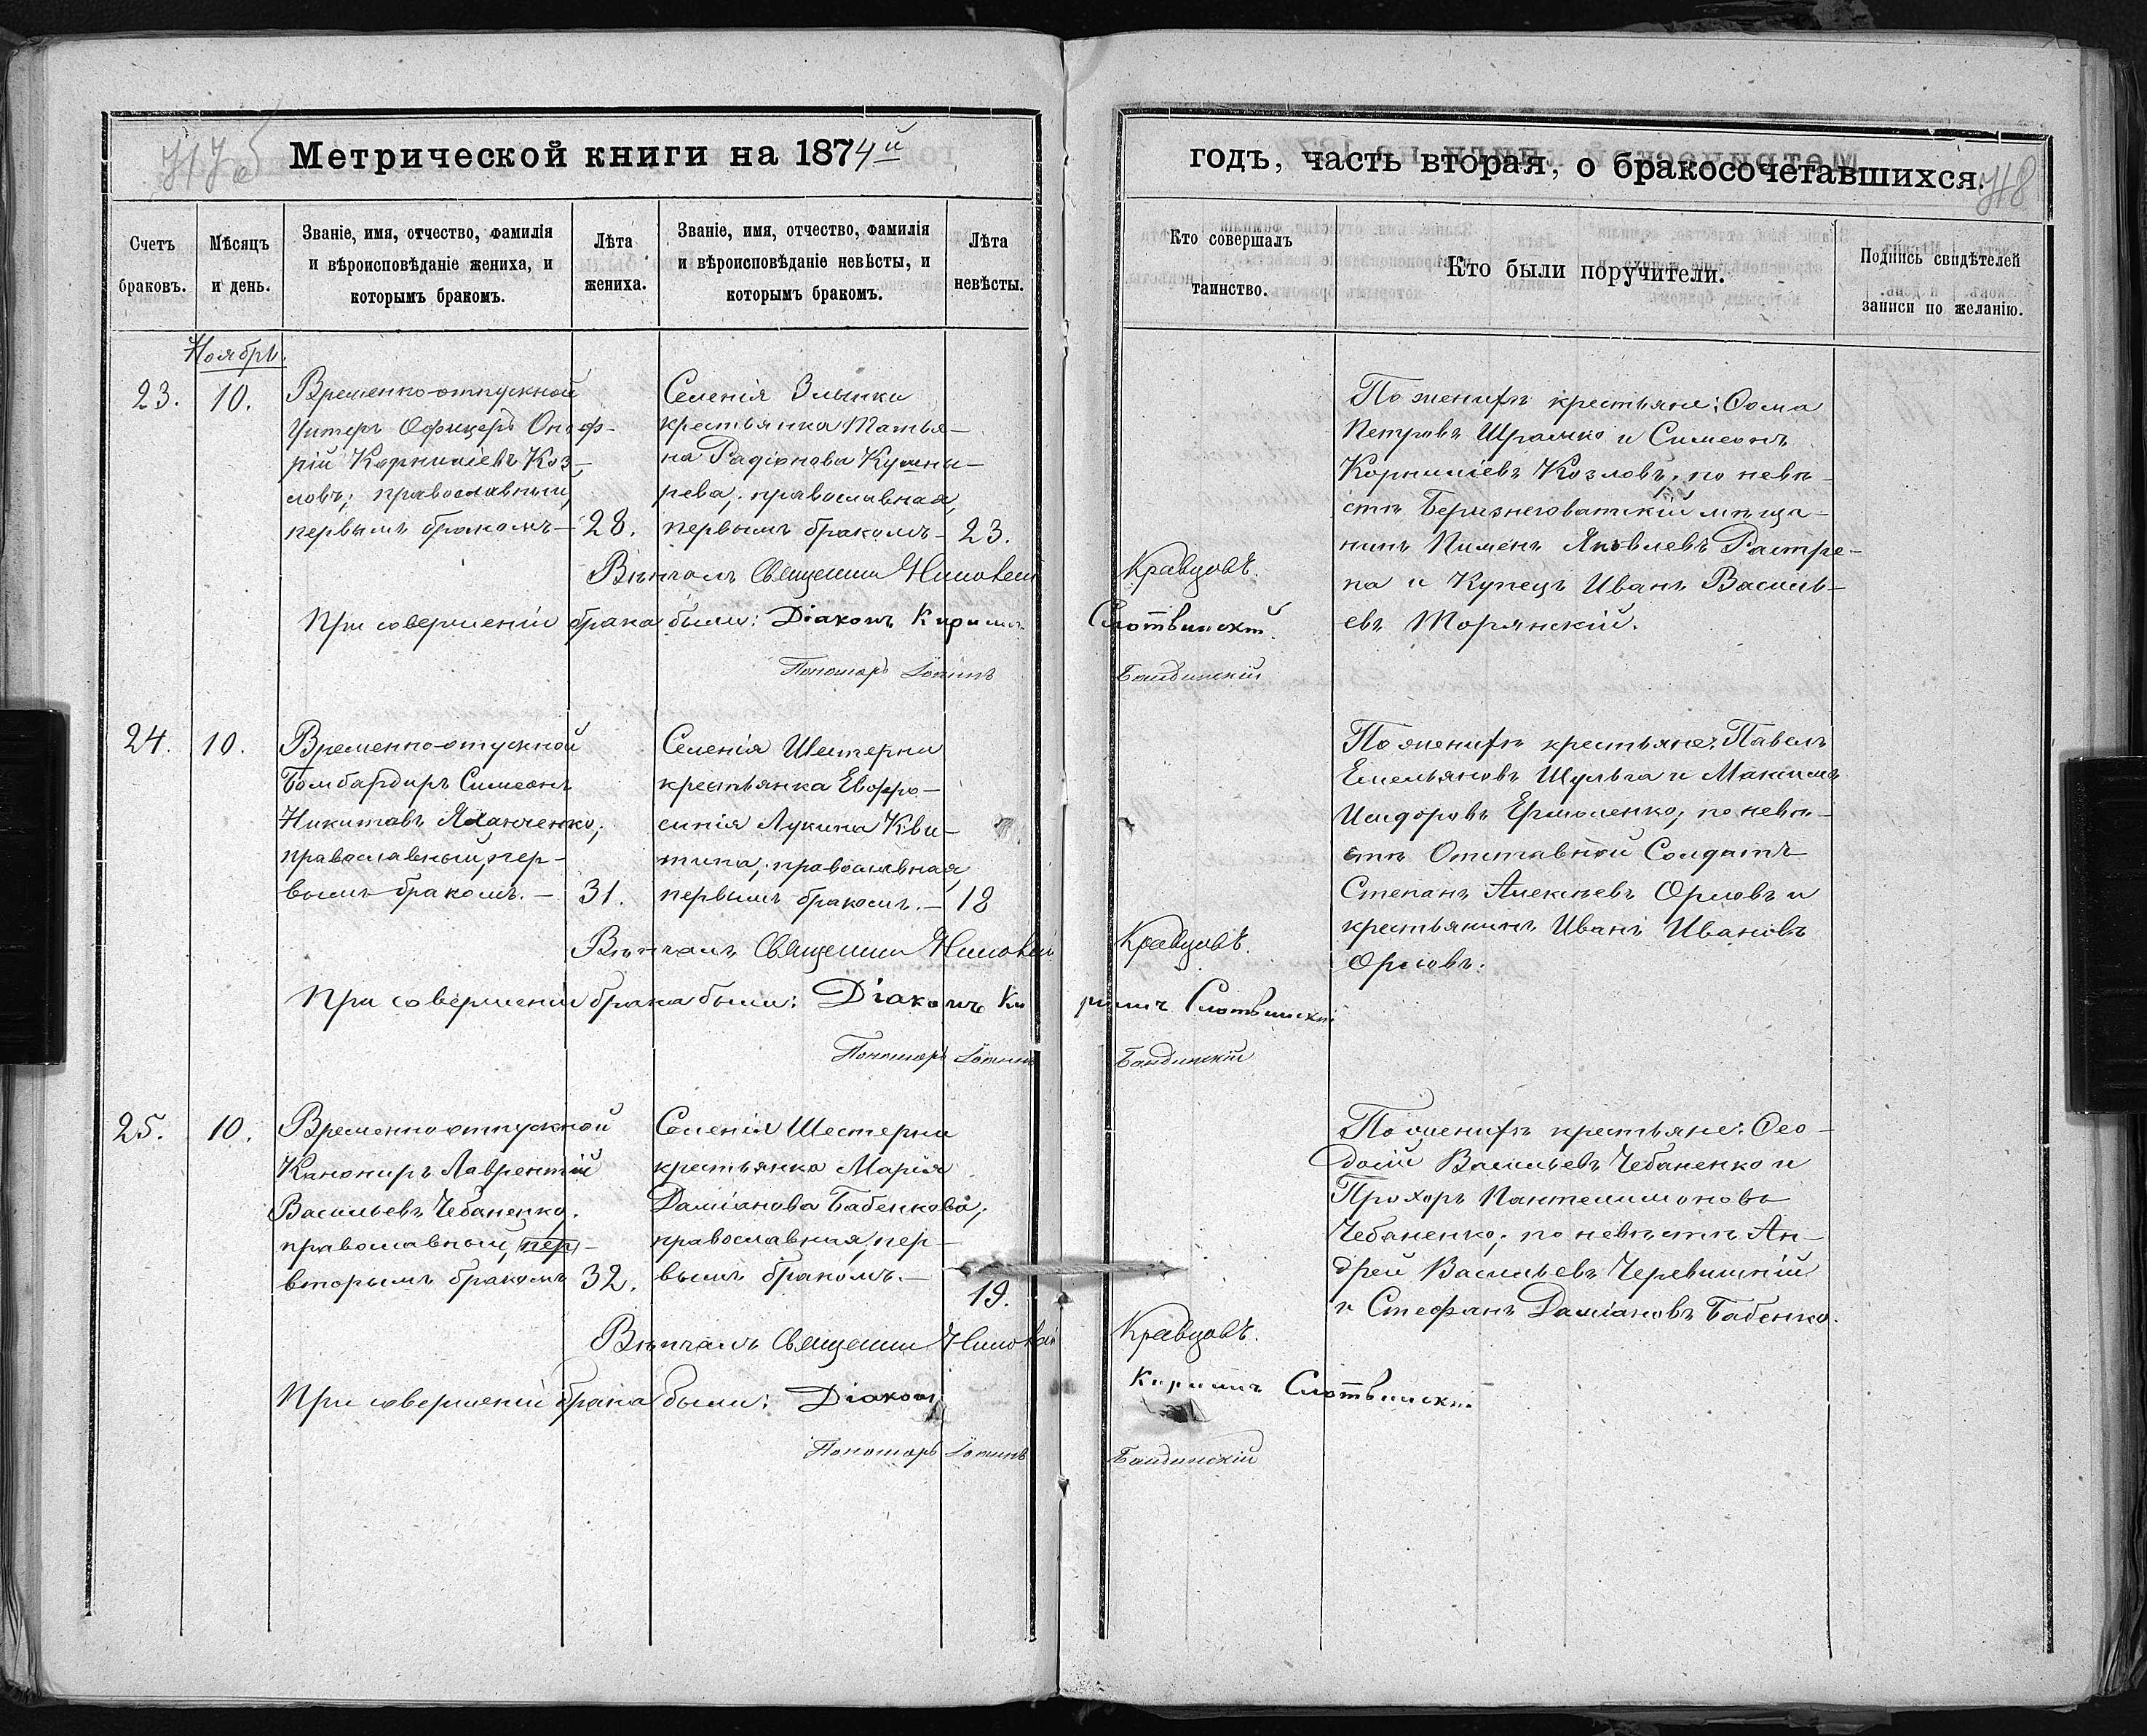 Метрической книги на 1874й
годъ, часть вторая, о бракосочетавшихся.
Счетъ браковъ.
Мѣсяцъ и день.
Званіе, имя, отчество, фамилія
и вѣроисповѣданіе жениха, и
которымъ бракомъ.
Лѣта жениха.
Званіе, имя, отчество, фамилія
и вѣроисповѣданіе невѣсты, и
которымъ бракомъ.
Лѣта невѣсты.
Кто совершалъ
таинство.
Кто были поручители.
Подпись свидѣтелей
записи по желанію.
Ноябрь.
23.
10.
Временно-отпускной
Унтеръ Офицеръ Оноф-
рій Корниліевъ Коз-
ловъ; православный,
первымъ бракомъ-
28.
Селенія Злынки
крестьянка Татья-
на Радіонова
православная,
первымъ бракомъ-
23.
По женихѣ крестьяне: Ѳома
Петровъ Шрамко и Симеонъ
Корниліевъ Козловъ, по невѣ-
стѣ Березнеговатскій мѣща-
нинъ Пименъ Яковлевъ Растре-
па и Купецъ Иванъ Василь-
евъ Торянскій.
Вѣнчалъ Священник Николай Кравцовъ.
При совершеніи брака были: Діаконъ Кирилъ Слотвинскій.
Пономарь Бандинскій
24.
10.
Временно-отпускной
Бомбардиръ Симеонъ
Никитовъ
православный, пер-
вымъ бракомъ.-
31.
Селенія Шестерни
крестьянка Евфро-
синія Лукина Кви-
тина; православная,
первымъ бракомъ.-
18
По женихѣ крестьяне: Павелъ
Емельяновъ Шульга и Максимъ
Исидоровъ Ермоленко; по невѣ-
стѣ Отставной Солдатъ
Степанъ Алексѣевъ Орловъ и
крестьянинъ Иванъ Ивановъ
Орловъ.
Вѣнчалъ Священник Николай Кравцовъ.
При совершеніи брака были: Діаконъ Кирилъ Слотвинскій
Пономарь Бандинскій
25.
10.
Временно-отпускной
Канониръ Лаврентій
Васильевъ Чебаненко.
православный, пер-
вторымъ бракомъ
32.
Селенія Шестерни
крестьянка Марія
Даміанова Бабенкова;
православная, пер-
вымъ бракомъ.-
19.
По женихѣ крестьяне: Ѳео-
досій Васильевъ Чебаненко и
Прохоръ Пантелимоновъ
Чебаненко; по невѣстѣ Ан-
дрей Васильевъ
и Стефанъ Даміановъ Бабенко.
Вѣнчалъ Священник Николай Кравцовъ.
При совершеніи брака были: Діаконъ Кирилъ Слотвинскій.
Пономарь Бандинскій